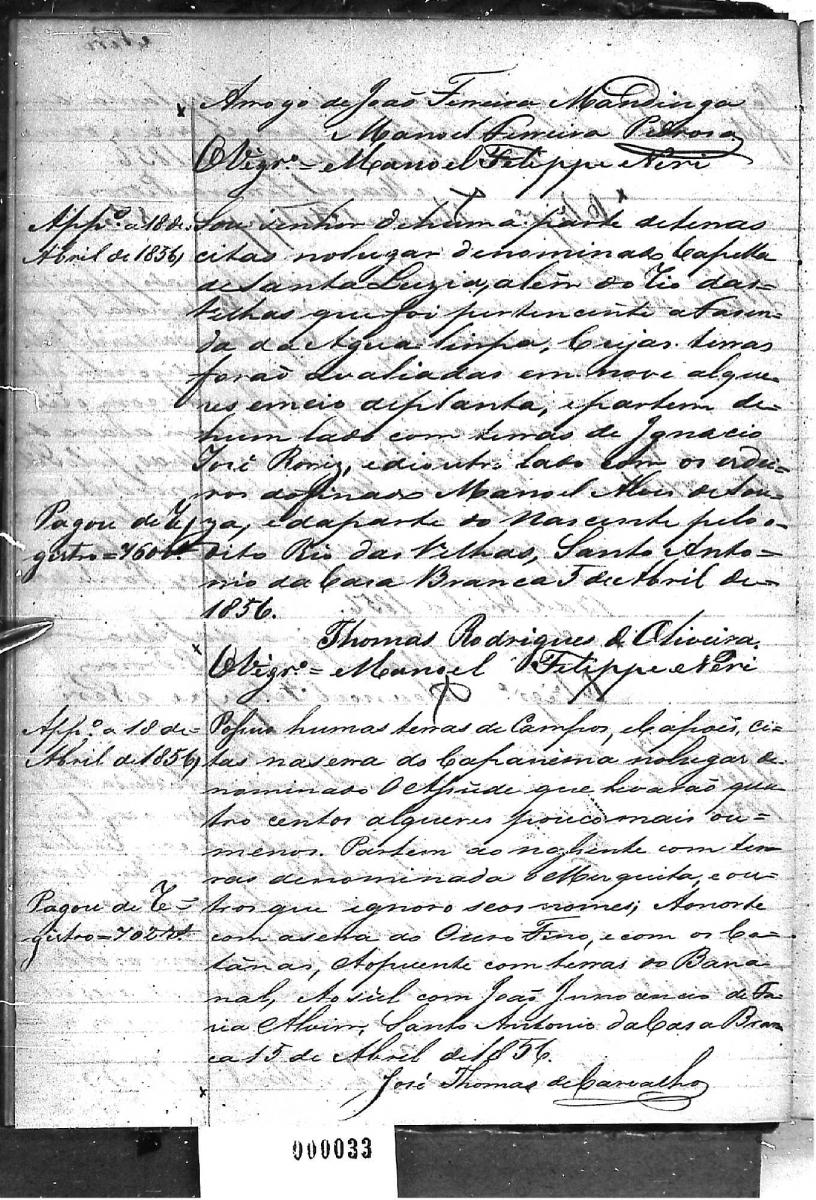 Arrogo de João Ferreira Mandinga
Manoel Ferreira Pedrosa
O Vigrº = Manoel Filippe Neri
App.º a 18 de
Abril de 1856,
Sou senhor de huma parte de terras
citas no lugar denominado Capella
de Santa Luzia, além do Rio das
Velhas que foi pertencente a Fasen-
da da Agua limpa, Cujas terras
forão avaliadas em nove alque-
res e meio de planta, e partem de
hum lado com terras de Ignacio
José Roriz, e de outro lado com os erdei-
ros do finado Manoel Alves de Sou-
Pagou de Re-
gistro = 760 rs.
za, e da parte do Nascente pelo
dito Rio das Velhas, Santo Anto-
nio da Casa Branca 5 de Abril de
1856.
Thomas Rodrigues de Oliveira.
O Vigrº = Manoel Filippe Neri
App.º a 18 de
Abril de 1856,
Possuo humas terras de Campos, e Capoēs, ci-
tas na serra do Capanema no lugar de
nominado O Açude que levarão qua
tro centos alqueres pouco mais ou
menos. Partem ao nascente com ter
ras denominada o Murguita, e ou-
Pagou de Re-
gistro =
tros que ignoro seos nomes; Ao norte
com a serra do Ouro Fino, e com os Ca-
tānas, Ao puente com terras do Bana
nal, Ao sul com João Innocencio de Fa
ria Alvim, Santo Antonio da Casa Bran
ca 15 de Abril de 1856.
José Thomas de Carvalho
000033